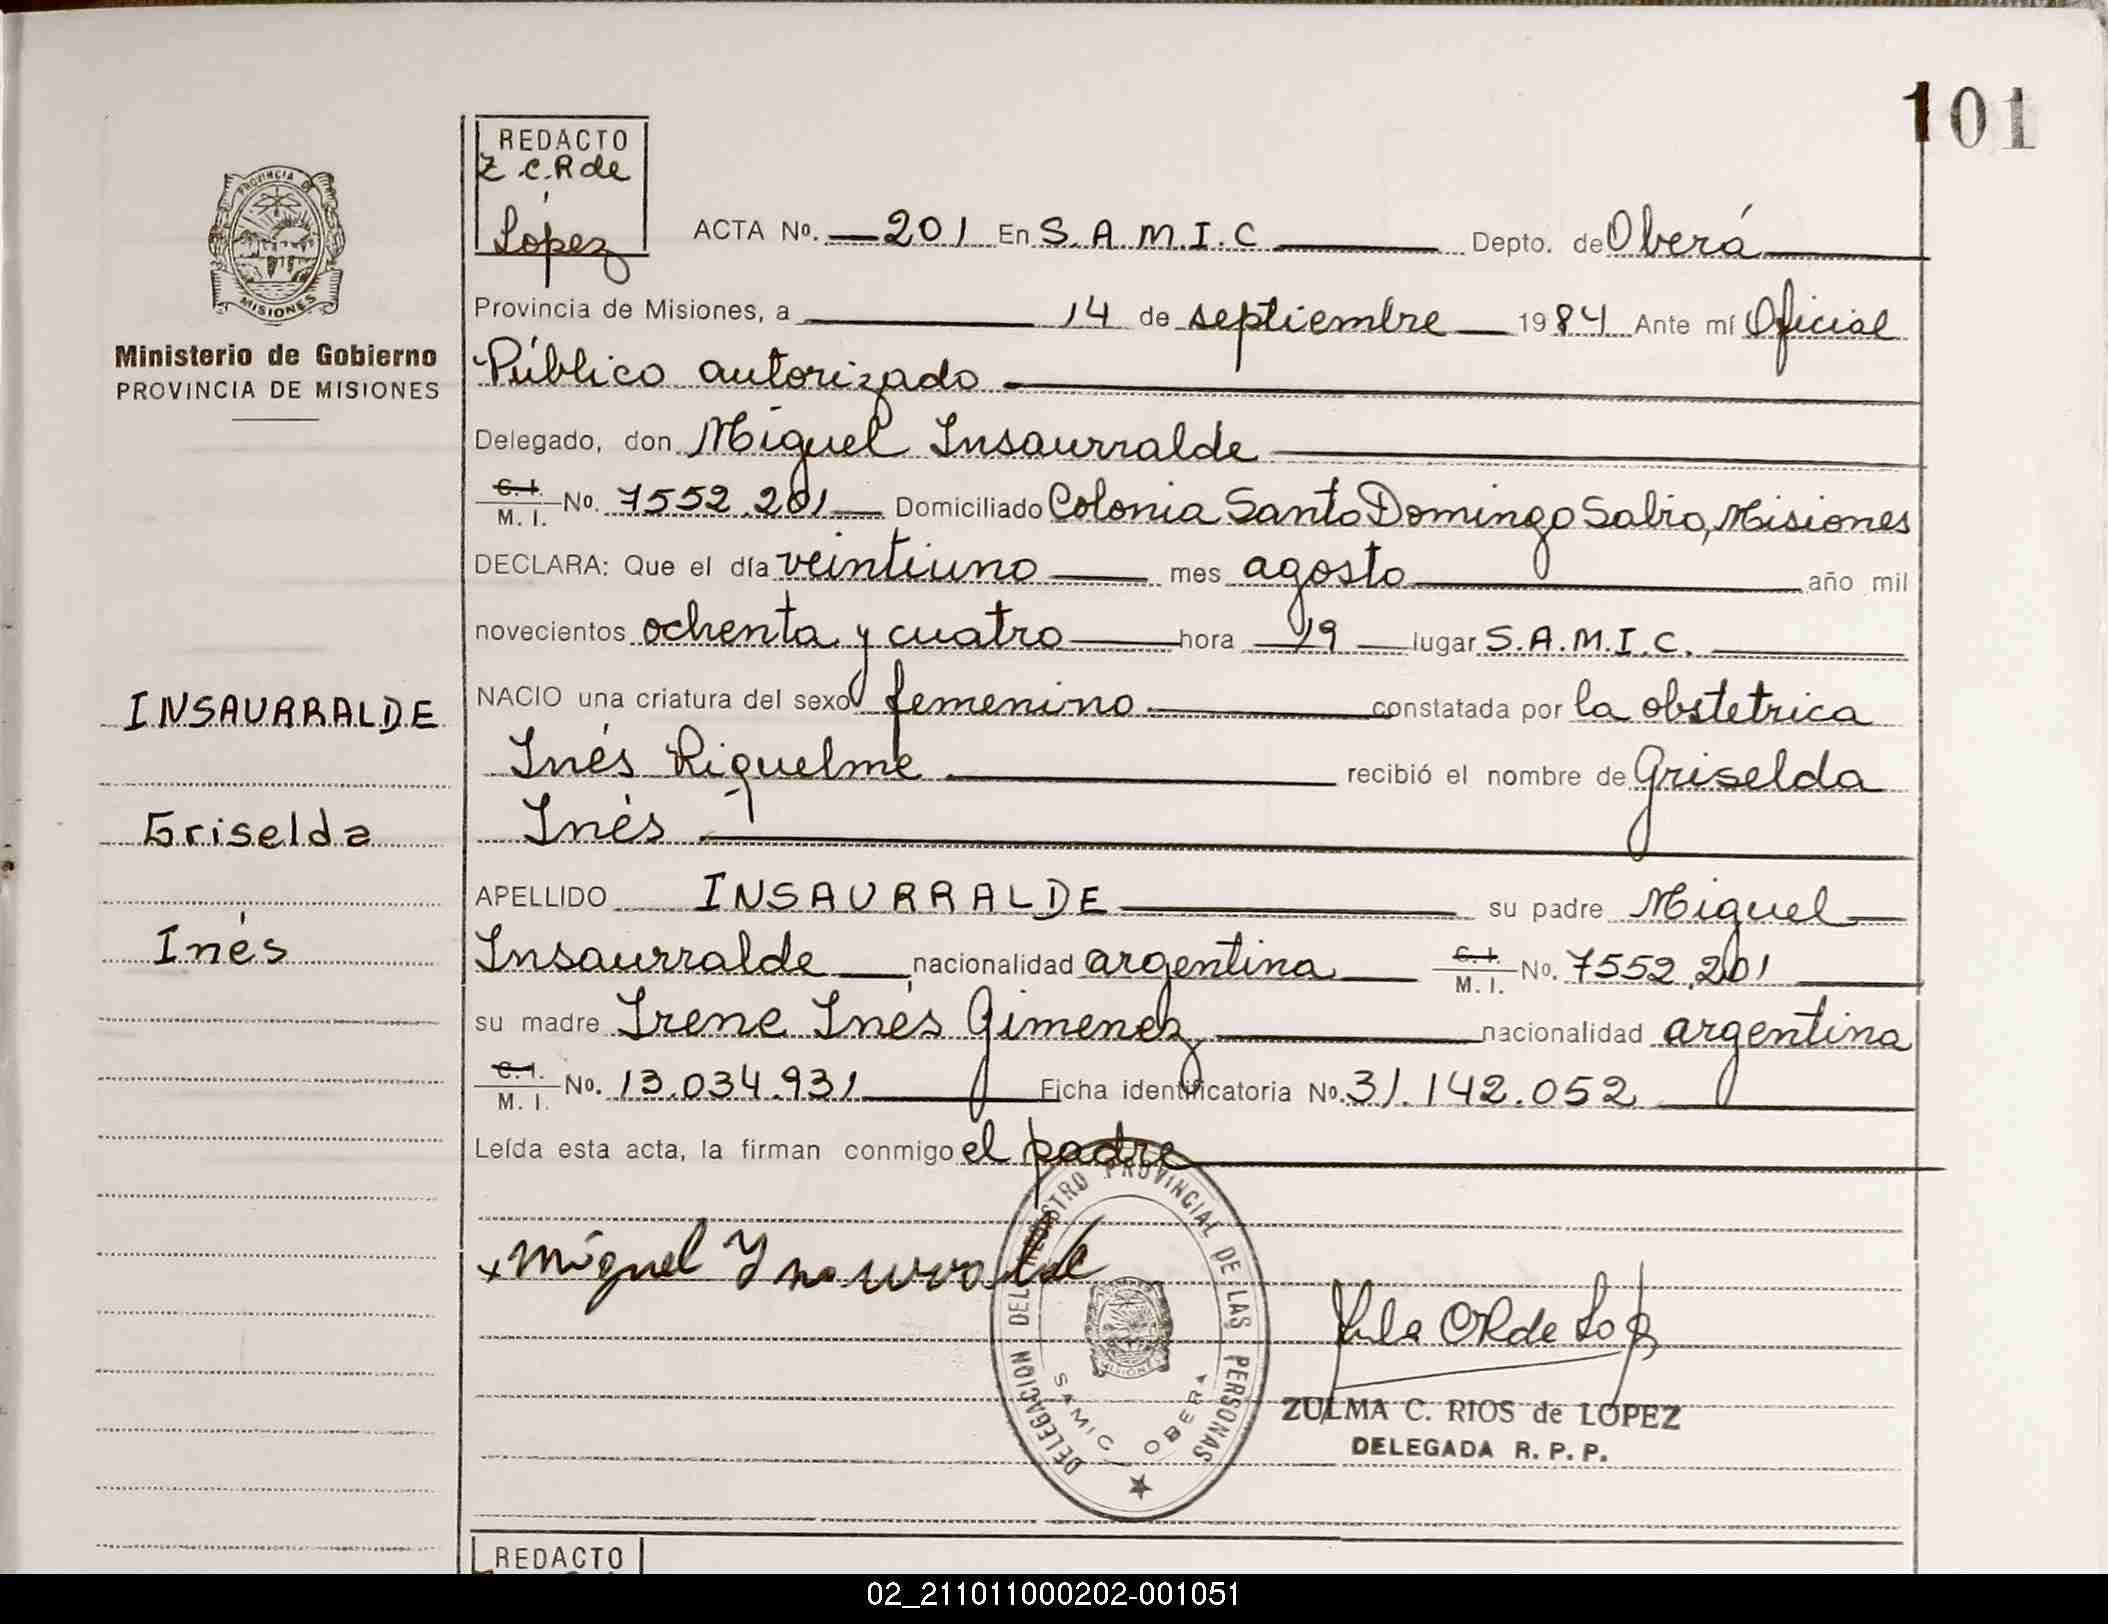 101
REDACTO
Z.C.R de
López
PROVINCIA DE
MISIONES
Ministerio de Gobierno
PROVINCIA DE MISIONES
ACTA No. 201 En S.A.M.I.C Depto. de Oberá
Provincia de Misiones, a 14 de septiembre 1984 Ante mí Oficial
Público autorizado
Delegado, don Miguel Insaurralde
C.I. M.I. No. 7552.201 Domiciliado Colonia Santo Domingo Sabio, Misiones
DECLARA: Que el día veintiuno mes agosto año mil
novecientos ochenta y cuatro hora 19 lugar S.A.M.I.C.
NACIO una criatura del sexo femenino constatada por la obstetrica
Inés Riquelme recibió el nombre de Griselda
Inés
APELLIDO INSAURRALDE su padre Miguel
Insaurralde nacionalidad argentina C.I. M.I. No. 7552.201
su madre Irene Inés Gimenez nacionalidad argentina
C.I. M.I. No. 13.034.931 Ficha identificatoria No. 31.142.052
Leída esta acta, la firman conmigo el padre
INSAURRALDE
Griselda
Inés
x Miguel Ynsaurralde
DELEGACION DEL REGISTRO PROVINCIAL DE LAS PERSONAS
SAMIC OBERA
MISIONES
ZULMA C. RIOS de LOPEZ
DELEGADA R. P. P.
REDACTO
02_211011000202-001051